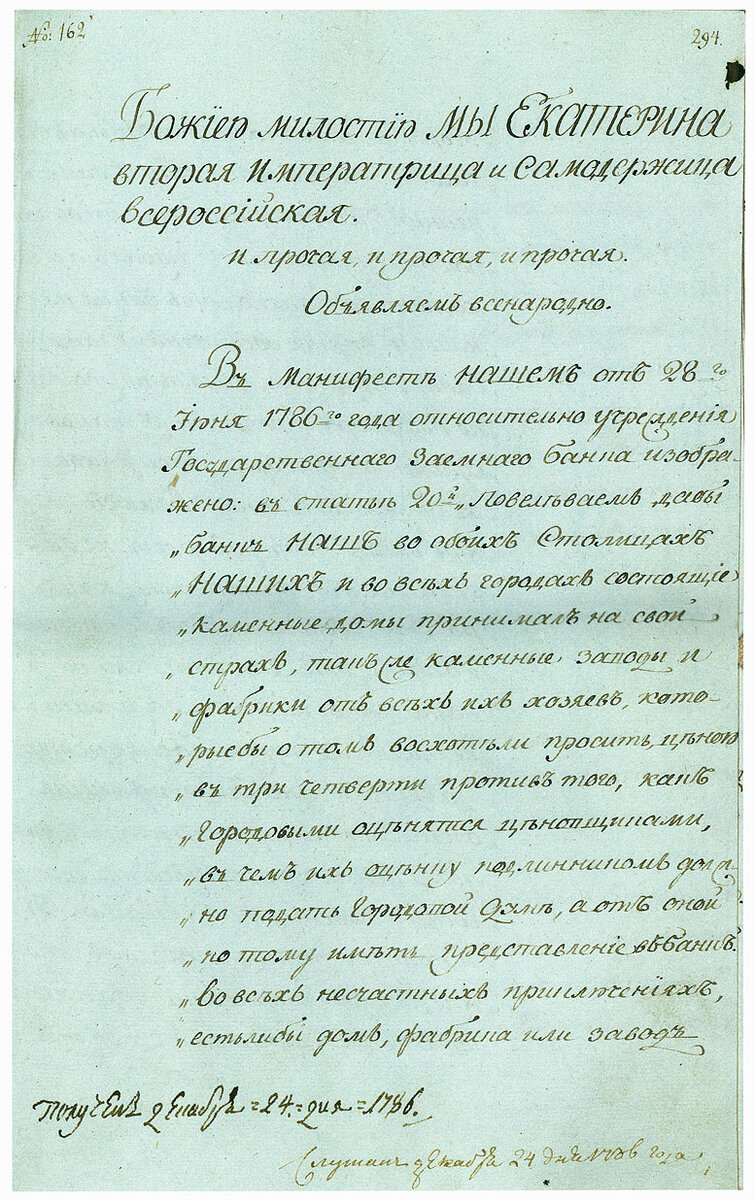 №: 162
294.
Божіею милостію МЫ ЕКАТЕРИНА
вторая Императрица и Самодержица
всероссійская.
и прочая, и прочая, и прочая.
Объявляемъ всенародно.
Въ Манифестѣ НАШЕМЪ отъ 28го
Іюня 1786го года относительно учрежденія
Государственнаго Заемнаго банка изобра-
жено: въ статьѣ 20й „Повелѣваемъ дабы
„банкъ НАШЪ во обоихъ Столицахъ
„НАШИХЪ и во всѣхъ городахъ состоящіе
„каменные домы принималъ на свой
„страхъ, такъ же каменные заводы и
„фабрики отъ всѣхъ ихъ хозяевъ, кото-
„рыебы о томъ восхотѣли просить, цѣною
„въ три четверти противъ того, какъ
„Городовыми оцѣнятся цѣновщиками,
„въ чемъ ихъ оцѣнку подлинникомъ долж-
„но подать Городовой Думѣ, а отъ оной
„по тому имѣть представленіе въ банкъ.
„Во всѣхъ несчастныхъ приключеніяхъ,
„естьлибы домъ, фабрика или заводъ
Полученъ декабря = 24. = дня = 1786.
Слушанъ декабря 24 дня 1786 года